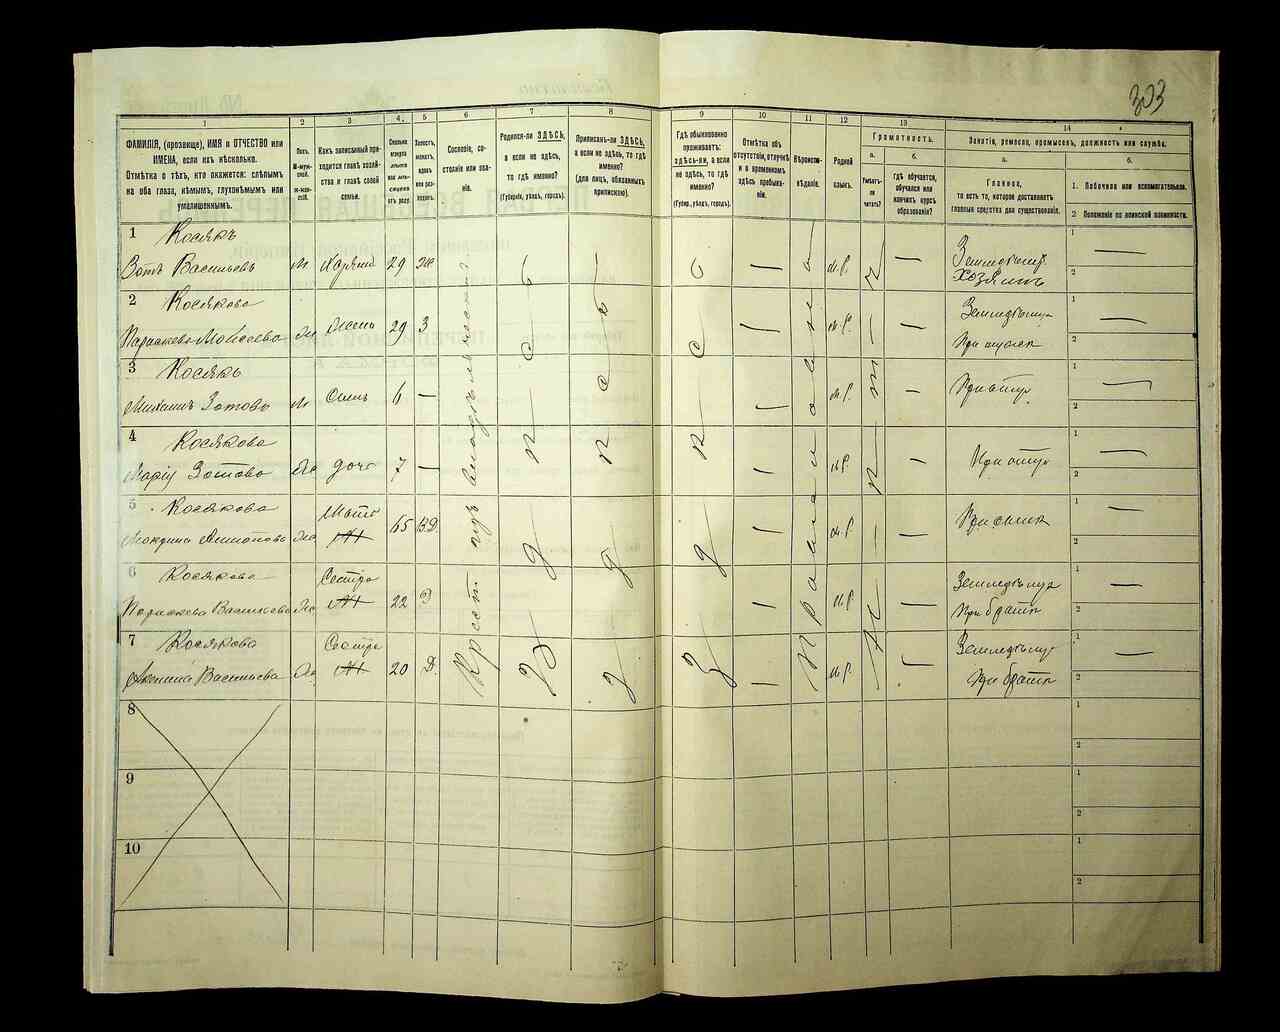 303
1
2
3
4.
5
6
7
8
9
10
11
12
13
14
ФАМИЛІЯ, (прозвище), ИМЯ и ОТЧЕСТВО или
ИМЕНА, если ихъ нѣсколько.
Отмѣтка о тѣхъ, кто окажется: слѣпымъ
на оба глаза, нѣмымъ, глухонѣмымъ или
умалишеннымъ.
Полъ.
М-муж-
ской.
Ж-жен-
скій.
Какъ записанный при-
ходится главѣ хозяй-
ства и главѣ своей
семьи.
Сколько
минуло
лѣтъ
или мѣ-
сяцевъ
отъ роду.
Холостъ,
женатъ,
вдовъ
или раз-
веденъ.
Сословіе, со-
стояніе или зва-
ніе.
Родился-ли ЗДѢСЬ,
а если не здѣсь,
то гдѣ именно?
(Губернія, уѣздъ, городъ).
Приписанъ-ли ЗДѢСЬ,
а если не здѣсь, то гдѣ
именно?
(для лицъ, обязанныхъ
припискою).
Гдѣ обыкновенно
проживаетъ:
здѣсь-ли, а если
не здѣсь, то гдѣ
именно?
(Губер., уѣздъ, городъ).
Отмѣтка объ
отсутствіи, отлучкѣ
и о временномъ
здѣсь пребыва-
ніи.
Вѣроиспо-
вѣданіе.
Родной
языкъ.
Грамотность.
а.
Умѣетъ-
ли
читать?
б.
Гдѣ обучается,
обучался или
кончилъ курсъ
образованія?
Занятіе, ремесло, промыселъ, должность или служба.
а.
Главное,
то есть то, которое доставляетъ
главныя средства для существованія.
б.
1. Побочное или вспомогательное.
2 Положеніе по воинской повинности.
1 Косякъ
Зотъ Васильевъ м Хозяинъ 29 Ж м.Р. Земледѣлецъ
Хозяинъ
2 Косякова
Параскева Моисеева жена 29 З м.Р. Земледѣлица
При мужѣ
3 Косякъ
Михаилъ Зотовъ м Сынъ 6 — м.Р. При отцѣ
4 Косякова
Марія Зотова дочь 7 — м.Р. При отцѣ
5 Косякова
Мокрина Мать 65 ВД м.Р. При сынѣ
6 Косякова
Параскева Васильева Сестра 22 Д м.Р. Земледѣлица
При братѣ
7 Косякова
Аксинья Васильева Сестра 20 Д. м.Р. Земледѣлица
При братѣ
Крест. изъ
Православн
8
9
10